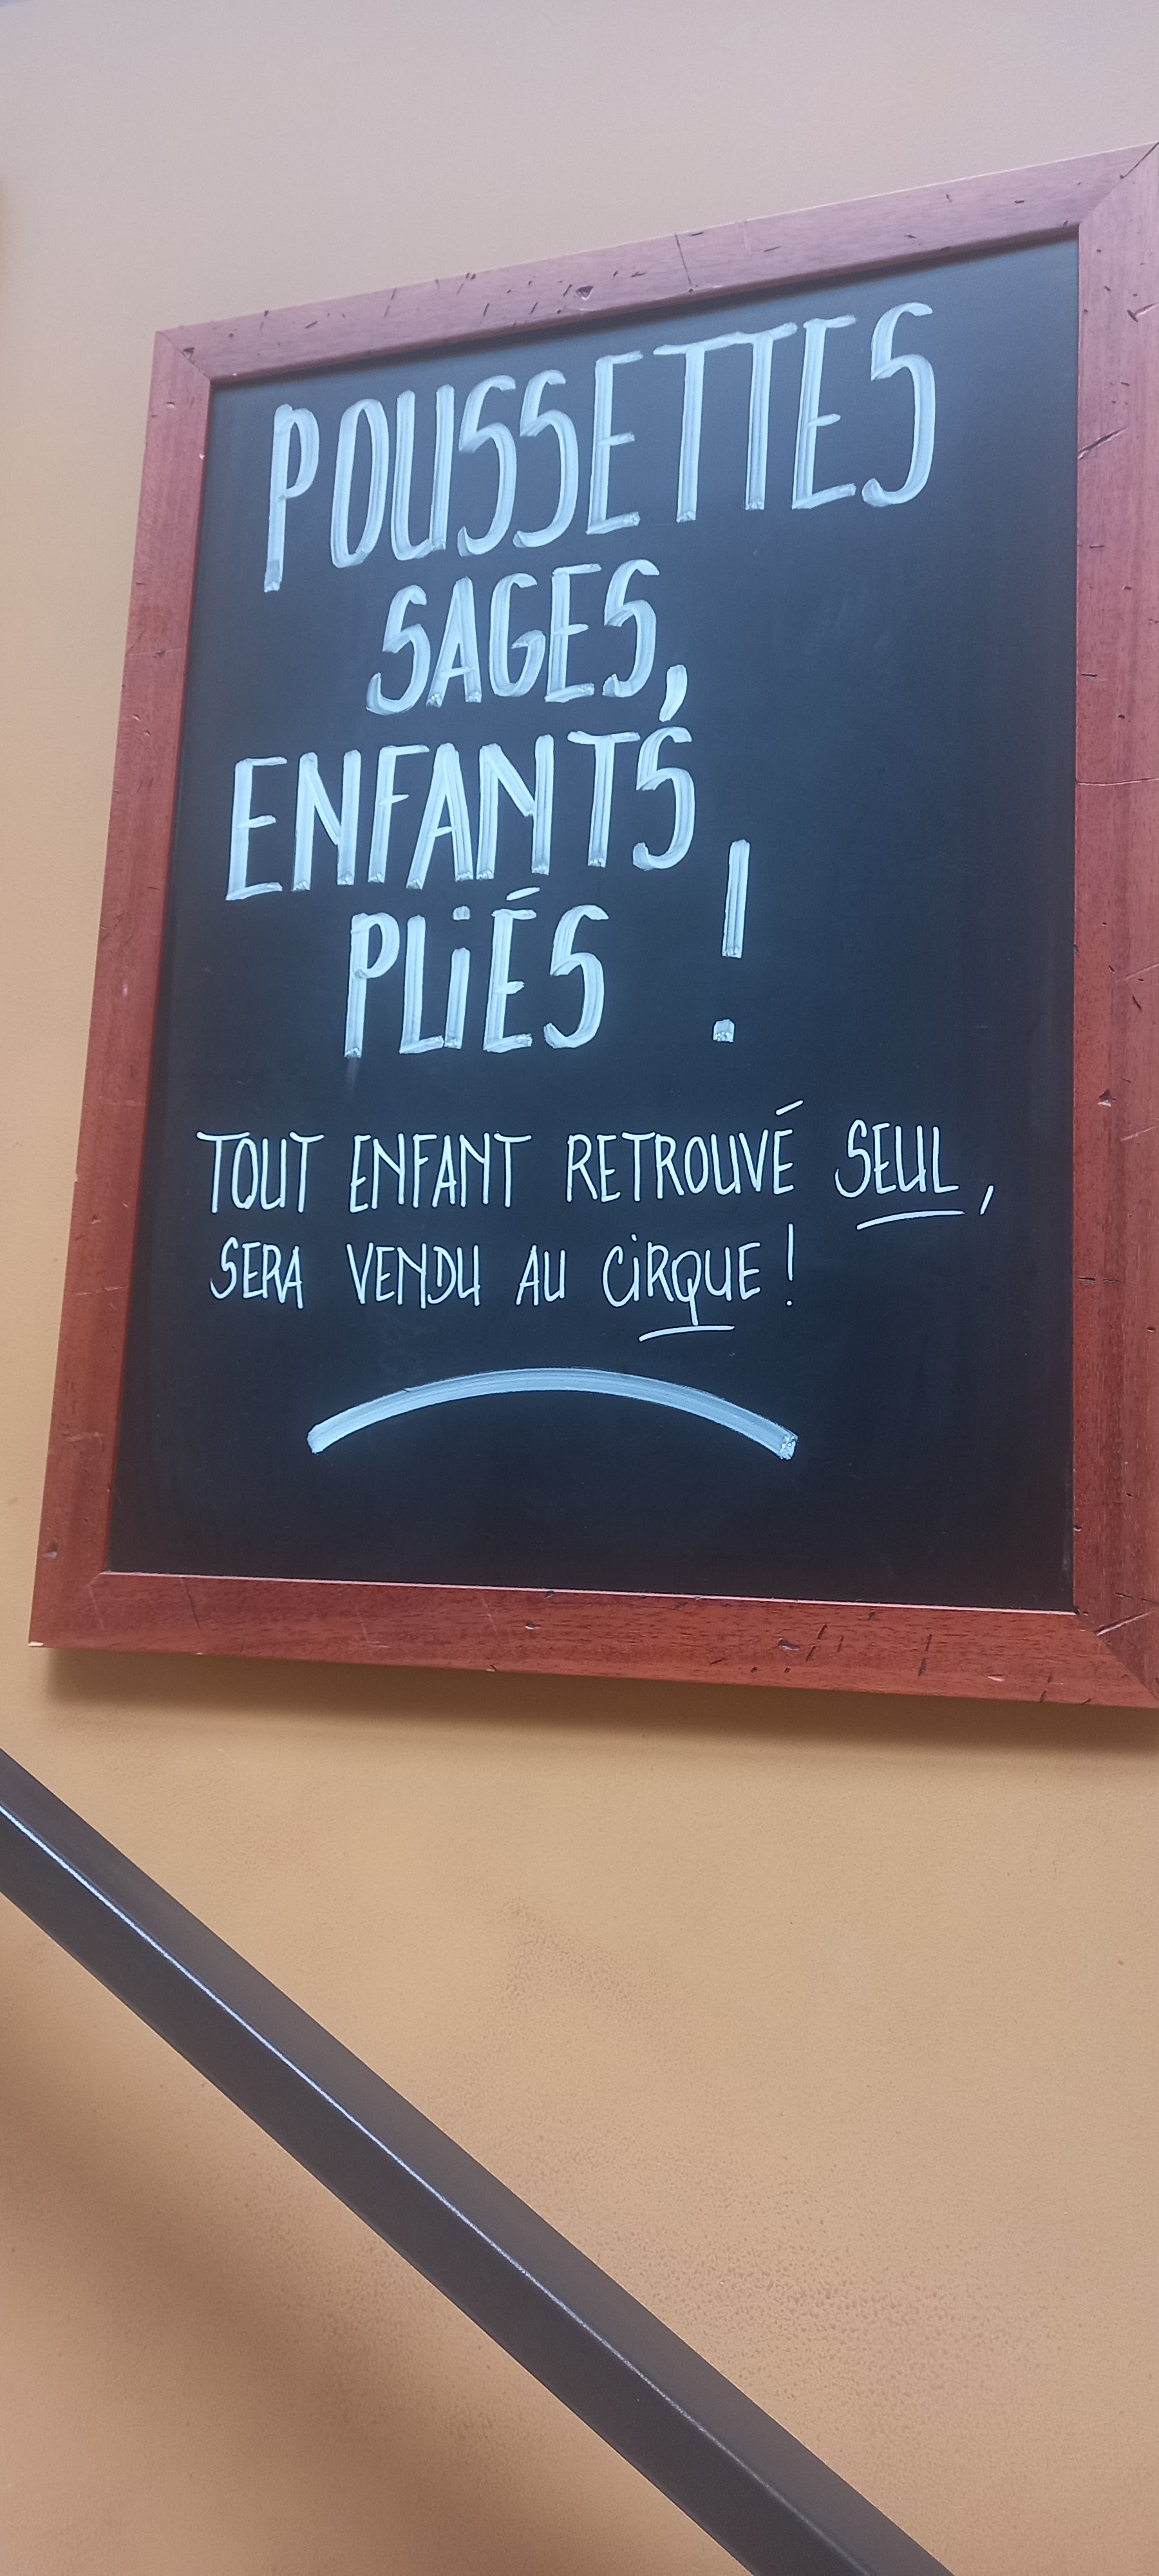 POUSSETTES
SAGES,
ENFANTS
PLIÉS !
TOUT ENFANT RETROUVÉ SEUL,
SERA VENDU AU CIRQUE !